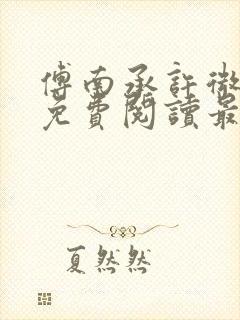 傅南承許微
免費閱讀最
夏然然